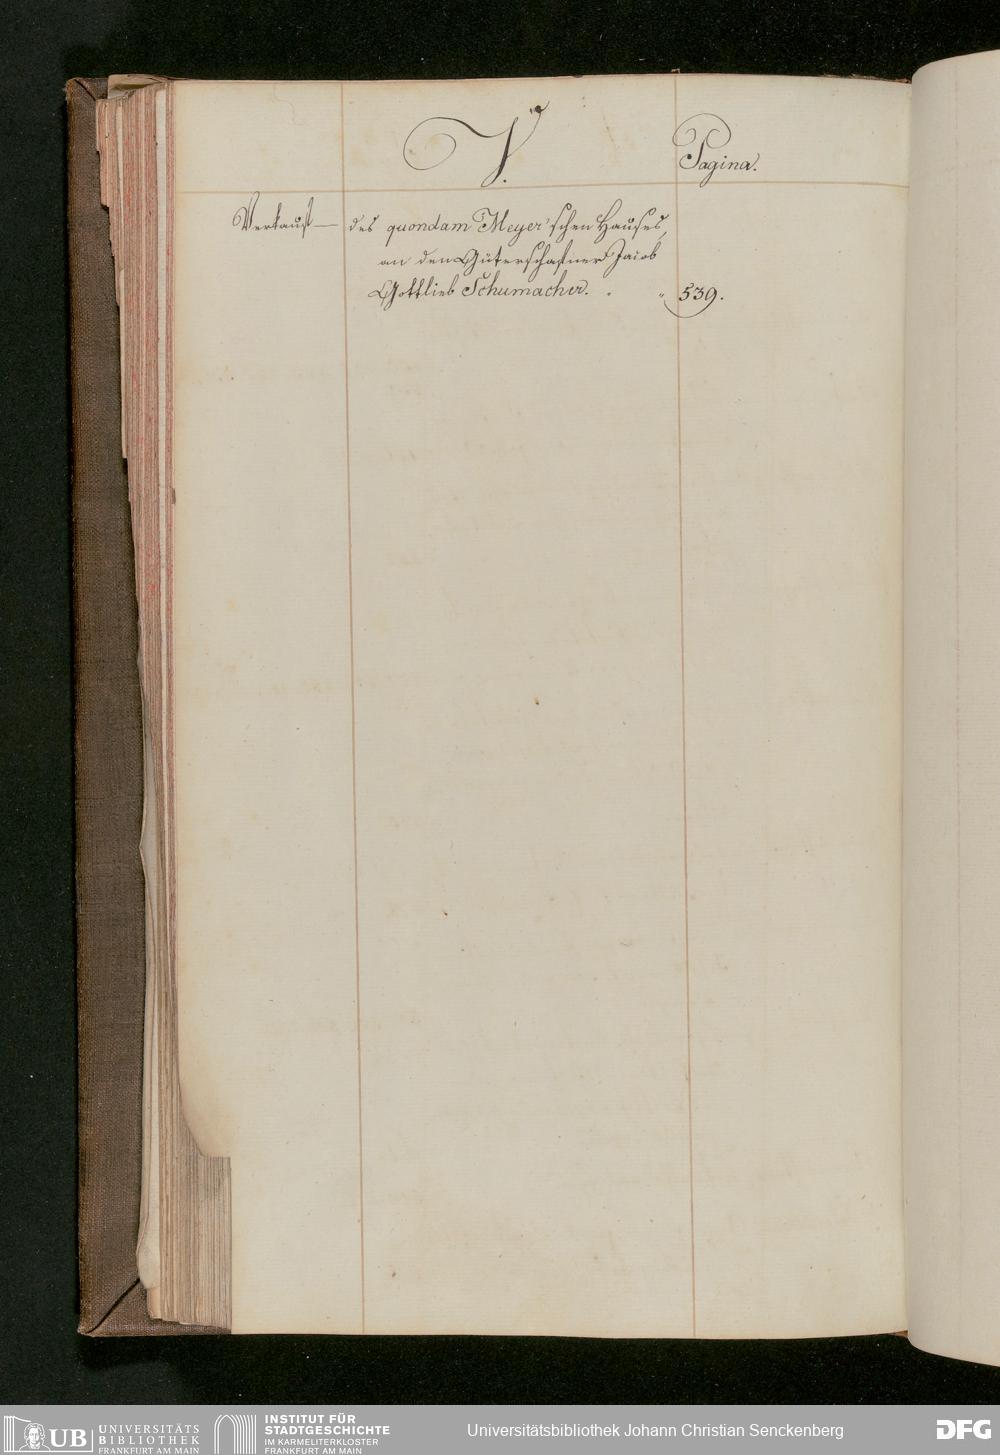 V.
Pagina.
Verkauf — des quondam Meyer'schen Hauses,
an den Güterschaffner Jacob
Gottlieb Schumacher. . „ 539.
UB UNIVERSITÄTS
BIBLIOTHEK
FRANKFURT AM MAIN
INSTITUT FÜR
STADTGESCHICHTE
IM KARMELITERKLOSTER
FRANKFURT AM MAIN
Universitätsbibliothek Johann Christian Senckenberg
DFG